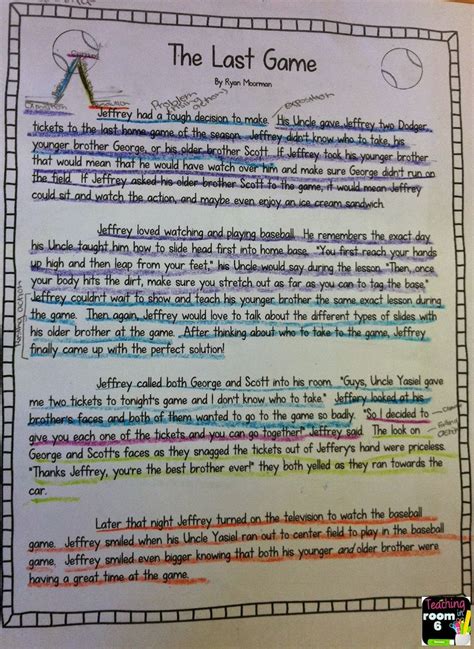 The Last Game
By Ryan Moorman
Problem
Rising action
exposition
Jeffrey had a tough decision to make. His Uncle gave Jeffrey two Dodger
tickets to the last home game of the season. Jeffrey didn't know who to take, his
younger brother George, or his older brother Scott. If Jeffrey took his younger brother
that would mean that he would have to watch over him and make sure George didn't run on
the field. If Jeffrey asked his older brother Scott to the game, it would mean Jeffrey
could sit and watch the action, and maybe even enjoy an ice cream sandwich.
Jeffrey loved watching and playing baseball. He remembers the exact day
his Uncle taught him how to slide head first into home base. "You first reach your hands
up high and then leap from your feet," his Uncle would say during the lesson. "Then, once
your body hits the dirt, make sure you stretch out as far as you can to tag the base."
Jeffrey couldn't wait to show and teach his younger brother the same exact lesson during
the game. Then again, Jeffrey would love to talk about the different types of slides with
his older brother at the game. After thinking about who to take to the game, Jeffrey
finally came up with the perfect solution!
Rising action
Jeffrey called both George and Scott into his room. "Guys, Uncle Yasiel gave
me two tickets to tonight's game and I don't know who to take." Jeffery looked at his
brother's faces and both of them wanted to go to the game so badly. "So I decided to
give you each one of the tickets and you can go together!" Jeffrey said. The look on
George and Scott's faces as they snagged the tickets out of Jeffery's hand were priceless.
"Thanks Jeffrey, you're the best brother ever!" they both yelled as they ran towards the
car.
Later that night Jeffrey turned on the television to watch the baseball
game. Jeffrey smiled when his Uncle Yasiel ran out to center field to play in the baseball
game. Jeffrey smiled even bigger knowing that both his younger and older brother were
having a great time at the game.
Teaching
in
room
6